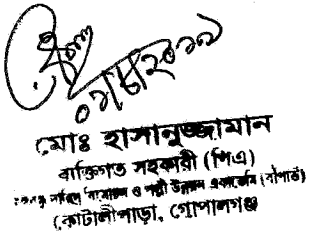 ০৭/৮/২০১৯
মোঃ হাসানুজ্জামান
ব্যক্তিগত সহকারী (পিএ)
দারিদ্র্য বিমোচন ও পল্লী উন্নয়ন একাডেমি (বাপার্ড)
কোটালীপাড়া, গোপালগঞ্জ